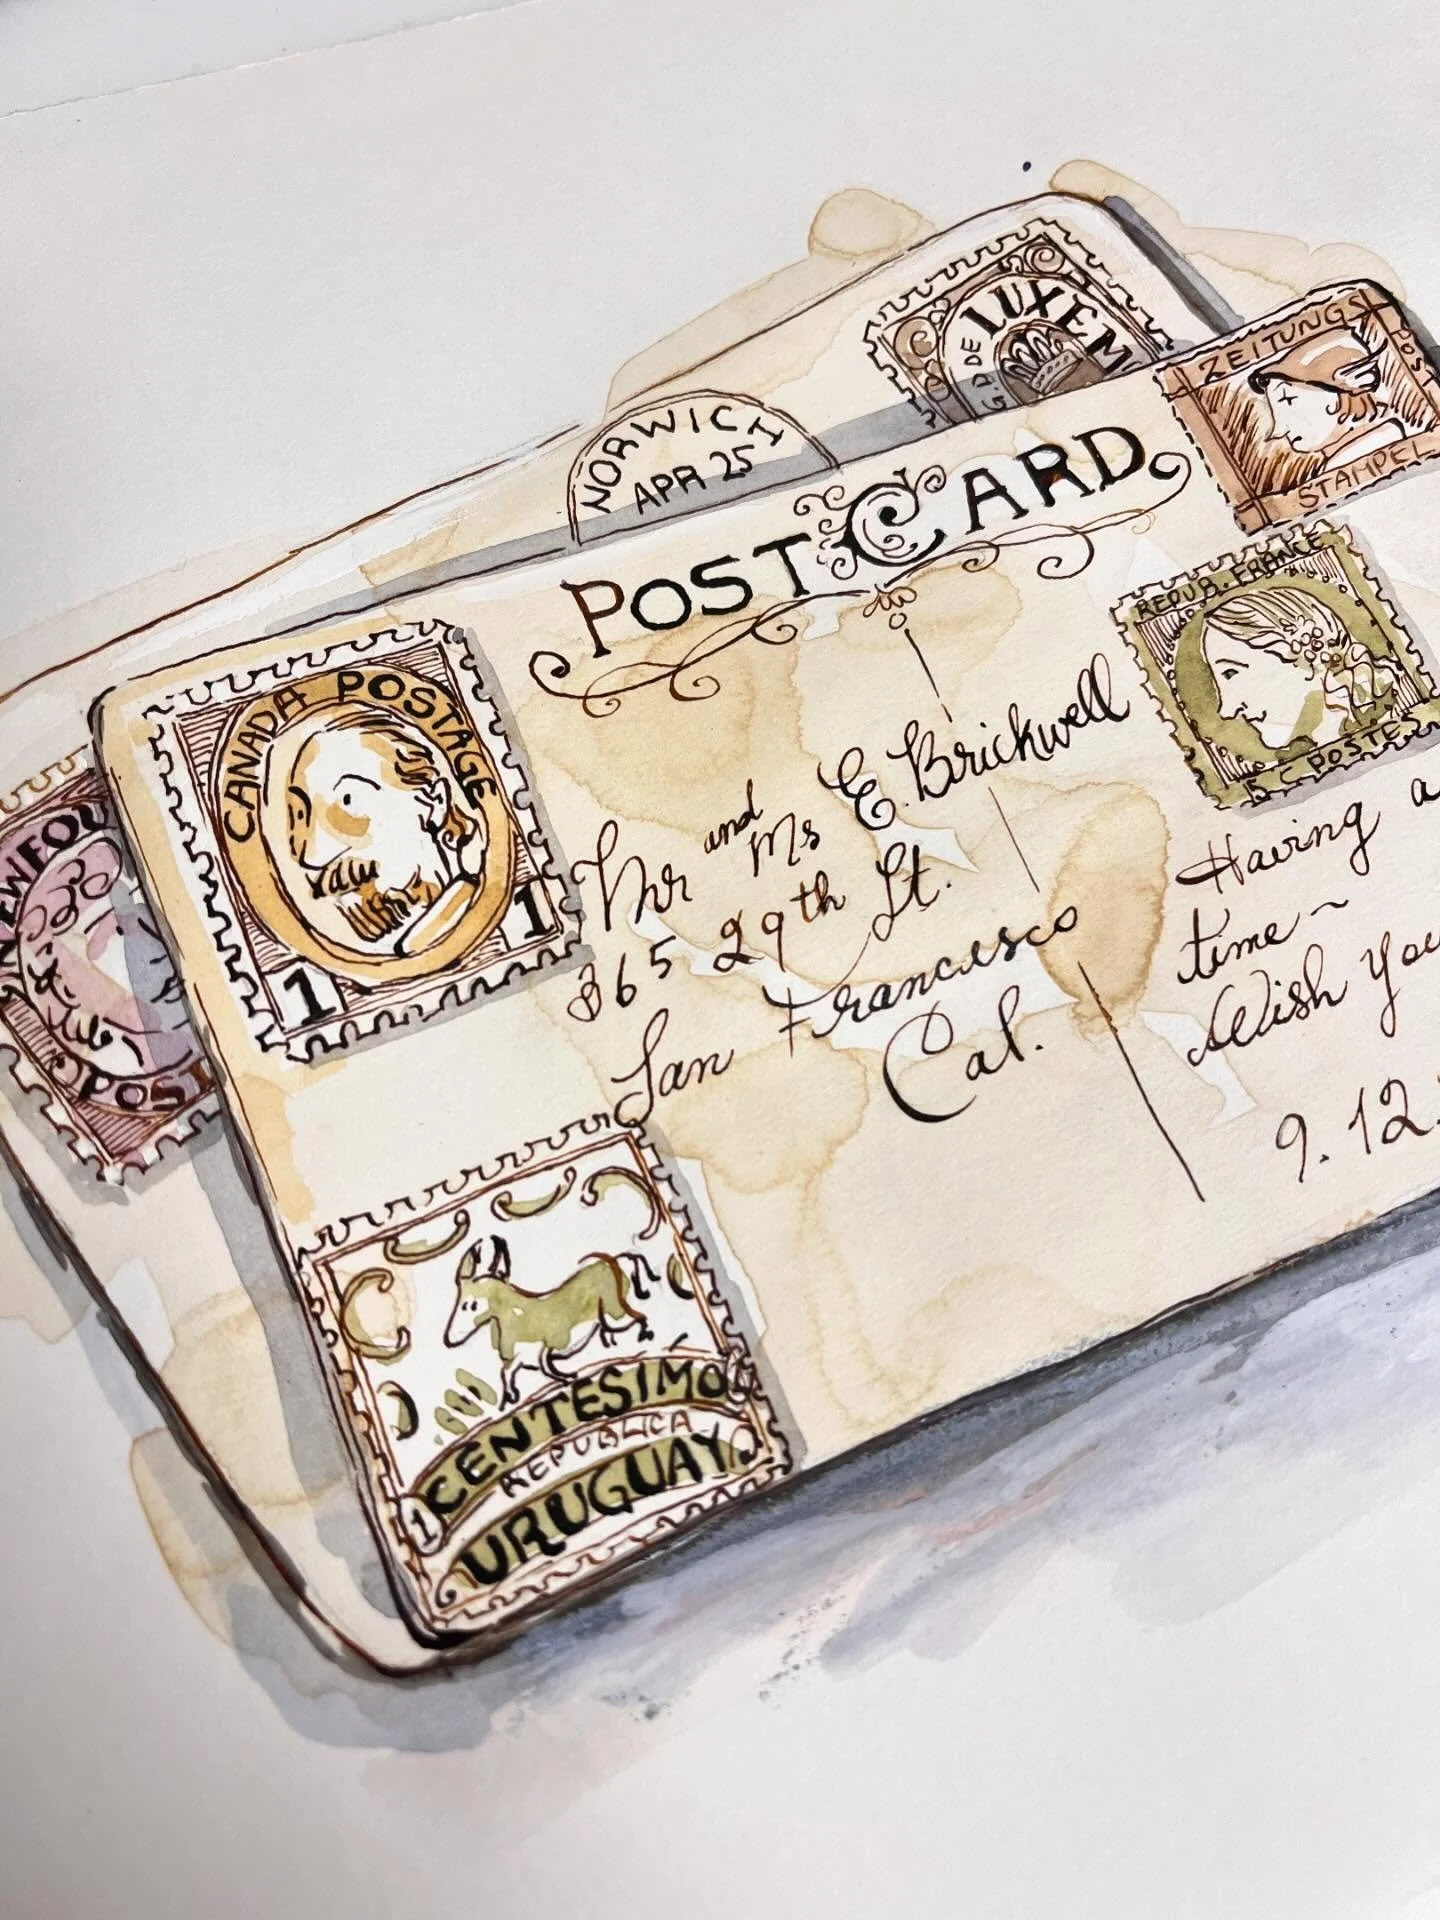 G.D. DE LUXEM
NORWICH
APR 25
ZEITUNGS
POST
STAMPEL
POSTCARD
REPUB. FRANCE
POSTES
CANADA POSTAGE
1
1
NEWFOU
POST
Mr and Ms E. Brickwell
865 29th St.
San Francesco
Cal.
Having a
time~
Wish You
9.12.
1 CENTESIMO
REPUBLICA
URUGUAY